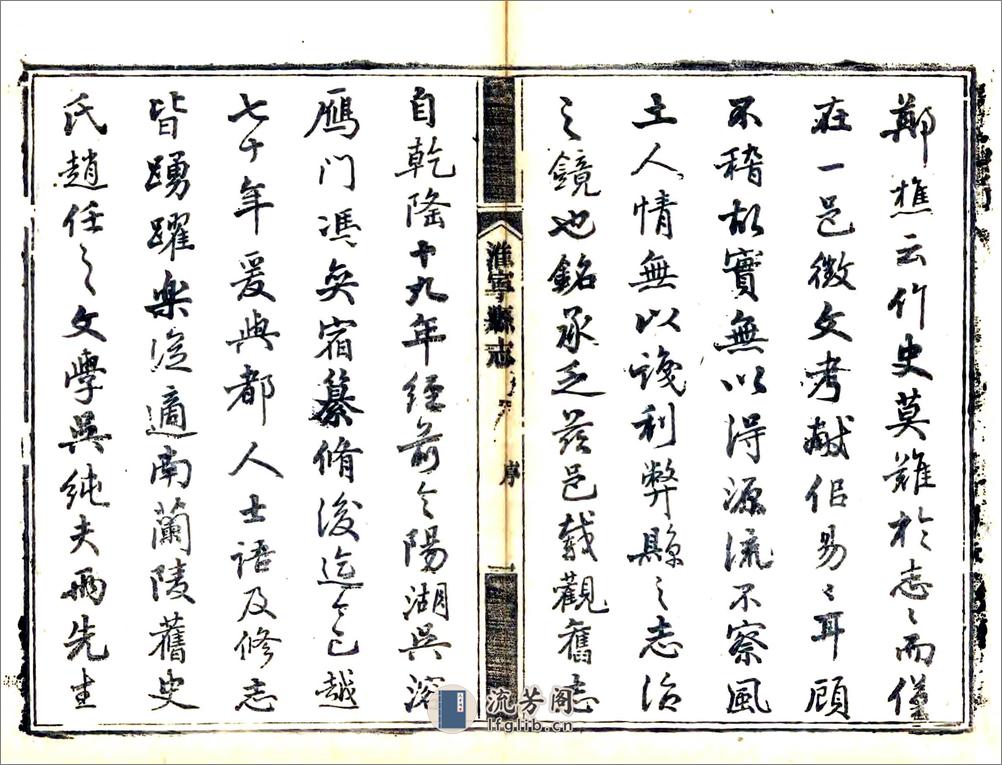 鄭樵云作史莫難於志〻而僅
在一邑徵文考獻侣易〻耳顧
不稽故實無以得源流不察風
土人情無以識利弊縣之志治
之鏡也銘承乏茲邑載觀舊志
淮寧縣志
序
自乾隆十九年經前令陽湖吳溶
鴈門馮奕宿纂脩後迄今已越
七十年爰與都人士語及修志
皆踴躍樂從適南蘭陵舊史
氏趙任之文學吳純夫兩先生
流芳阁
lfglib.cn